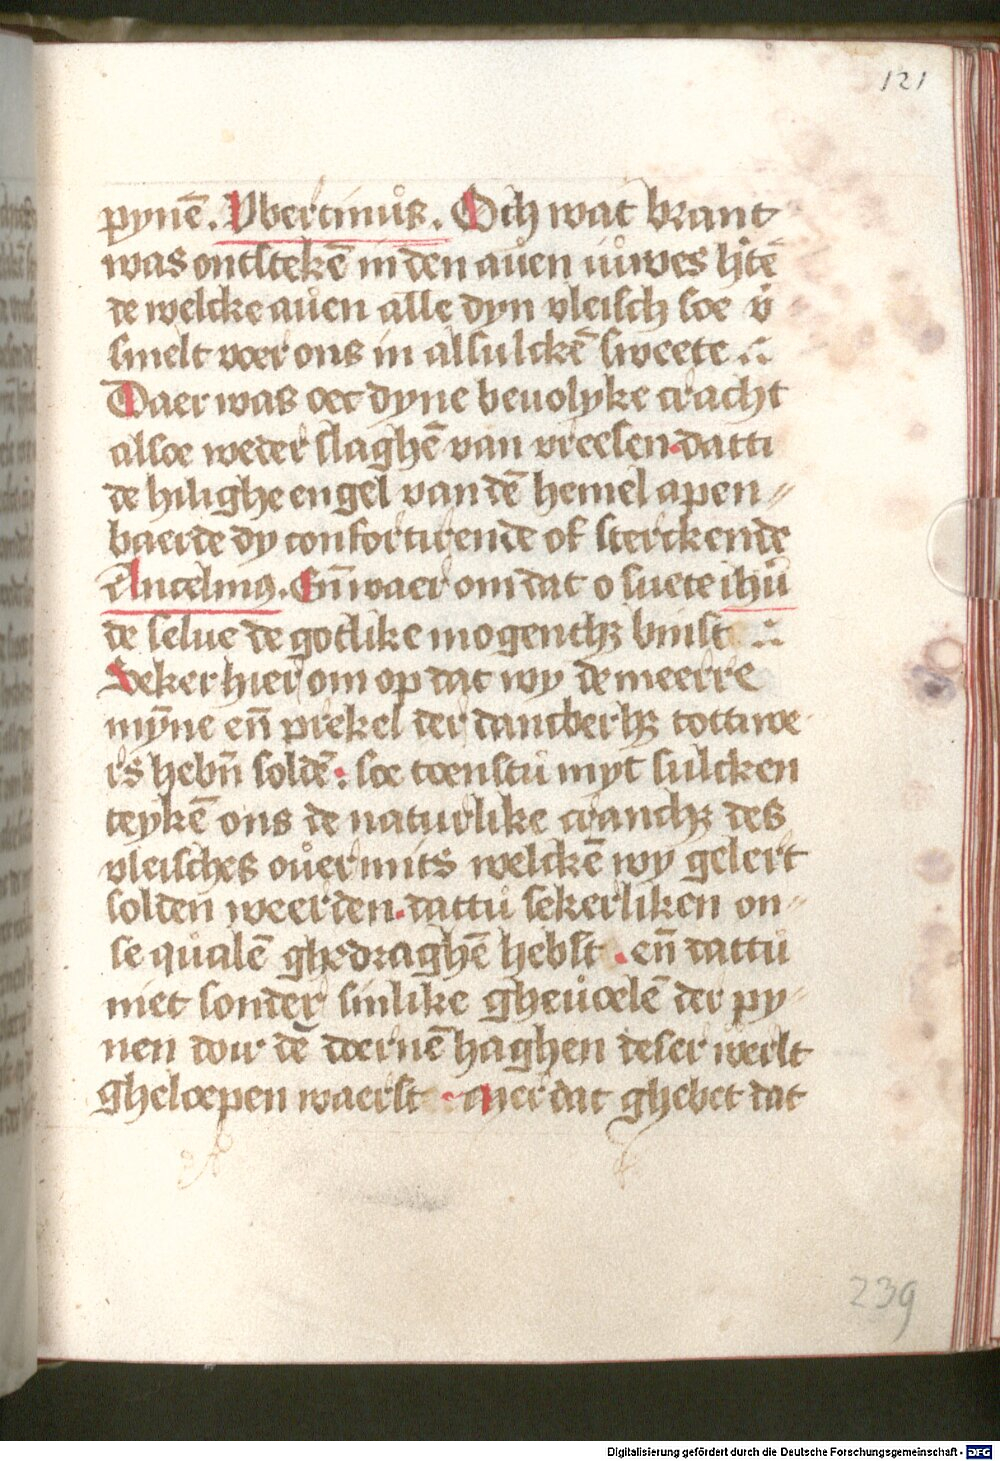 121
pynē. Vbertinůs. Och wat brant
was ontstekē in den auen iůwes h͛tē
de welcke aůen alle dyn vleisch soe v͛
smelt voer ons in alsulckē sweete .:
Daer was oec dyne bevolyke cracht
alsoe weder slaghē van vreesen. datti
de hilighe engel van dē hemel apen⸗
baerde dy confortirende of sterckende
Ancelmꝰ. En̄ waer om dat o suete ihū
de selue de gotlike mogenthꝫ binst .:
Seker hier om op dat wy de meerre
mȳne en̄ prekel der dancberhꝫ tottiwe
rs hebn̄ soldē: soe toenstů myt sůlcken
teykē ons de naturlike cranchꝫ des
vleisches ouermits welckē wy gelert
solden weerden. dattů sekerliken on⸗
se qůalē ghedraghē hebst . en̄ dattů
niet sonder sinlike gheůoelē der py⸗
nen doir dē doernē haghen deser werlt
gheloepen waerst . Mer dat ghebet dat
239
Digitalisierung gefördert durch die Deutsche Forschungsgemeinschaft - DFG